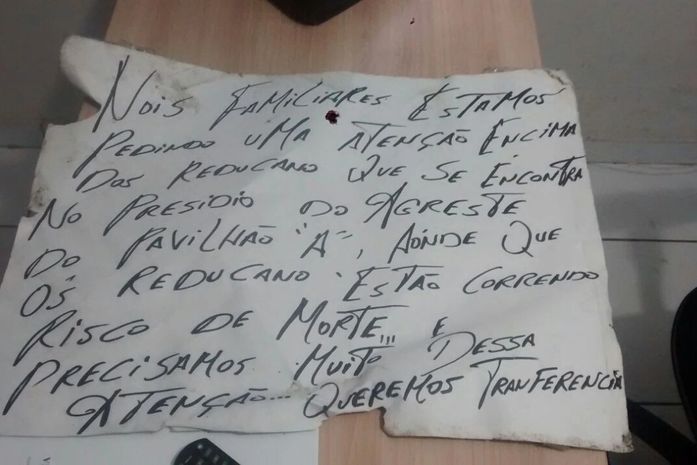 NOIS FAMILIARES ESTAMOS
PEDINDO UMA ATENÇÃO ENCIMA
DOS REDUCANO QUE SE ENCONTRA
NO PRESIDIO DO AGRESTE
DO PAVILHÃO "A", AONDE QUE
OS REDUCANO ESTÃO CORRENDO
RISCO DE MORTE... E
PRECISAMOS MUITO DESSA
ATENÇÃO... QUEREMOS TRANFERENCIA